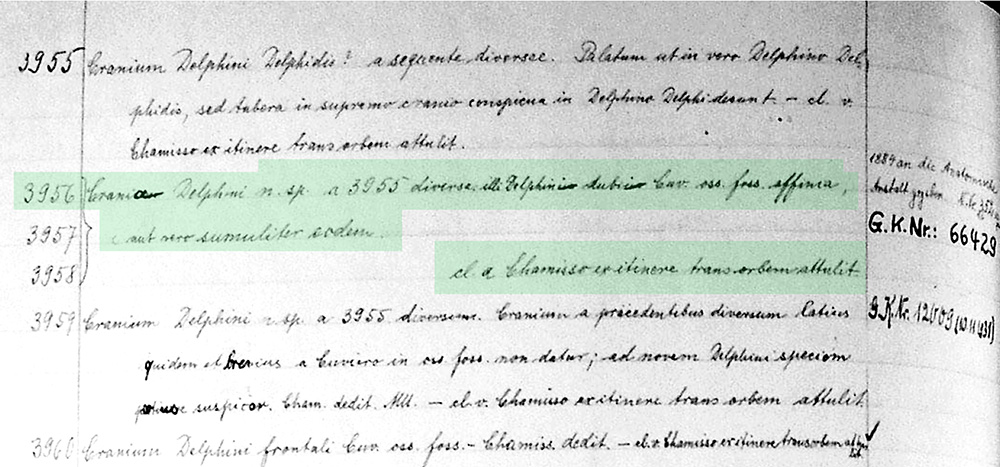 3955 Cranium Delphini Delphidis? a sequente diversae. Palatum ut in vero Delphino Del-
phidis, sed tubera in supremo cranio conspicua in Delphino Delphi desunt – cl. v.
Chamisso ex itinere trans orbem attulit.
3956 Crania Delphini n. sp. a 3955 diversa illi Delphini dubii Cuv. oss. foss. affinia,
3957 aut vero sumuliter eodem.
3958 cl a Chamisso ex itinere trans orbem attulit
1884 an die
Anstalt
G.K.Nr.: 66429
3959 Cranium Delphini n. sp. a 3955 diversum. Cranium a praecedentibus diversum latius
quidem et brevius a Cuviero in oss foss. non datur; ad novem Delphini speciem
suspicor. Cham. dedit. – cl. v. Chamisso ex itinere trans orbem attulit.
G.K.Nr.
3960 Cranium Delphini frontali Cuv. oss. foss. – Chamiss. dedit. – cl. v. Chamisso ex itinere trans orbem